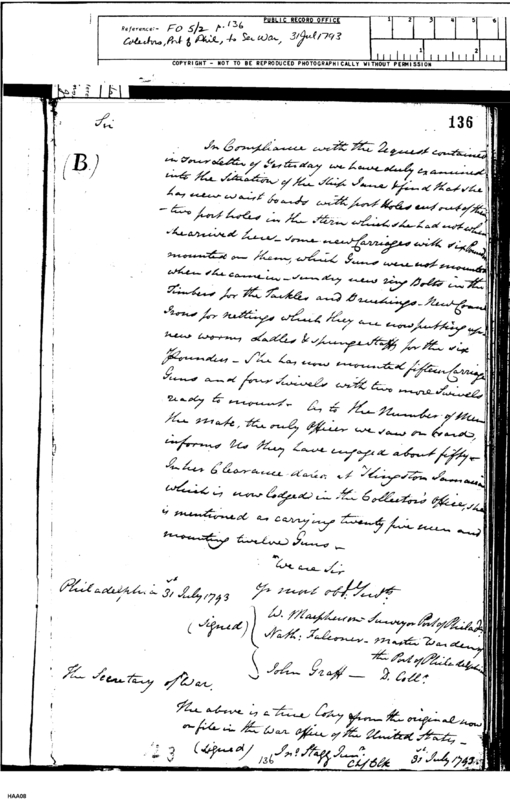 PUBLIC RECORD OFFICE
Reference:- FO 5/2 p. 136
Colectors, Port of Phil, to Sec War, 31 Jul 1793
1 2 3 4 5 6
1 2
COPYRIGHT - NOT TO BE REPRODUCED PHOTOGRAPHICALLY WITHOUT PERMISSION
136
Sir
(B.)
In Compliance with the Request contained
in your Letter of Yesterday we have duly examined
into the Situation of the Ship Jane & find that she
has new waist boards with port Holes cut out of them
- two port holes in the Stern which she had not when
she arrived here - some new Carriages with six Pound
mounted on them, which Guns were not mounted
when she came in - sundry new ring Bolts in the
Timbers for the Tackles and Breechings - New Crane
Irons for nettings which they are now putting up
new worms Ladles & spunge Staffs for the six
Pounders - She has now mounted fifteen Carriage
Guns and four Swivels with two more Swivels
ready to mount - As to the Number of Men
the mate, the only Officer we saw on board,
informs us they have engaged about fifty -
In her Clearance dated at Kingston Jamaica
which is now lodged in the Collector's Office, she
is mentioned as carrying twenty five men and
mounting twelve Guns -
We are Sir
Yr most obt. Servts.
Philadelphia 31st July 1793
(signed)
W. Macpherson - Surveyor Port of Philada.
Nath: Falconer - Master Warden of
the Port of Philadelphia
John Graff - D. Collr.
The Secretary of War.
The above is a true Copy from the original now
on file in the War Office of the United States -
(signed) Jno. Stagg Junr.
Ch. Clk 31st July 1793
136
23
HAA08